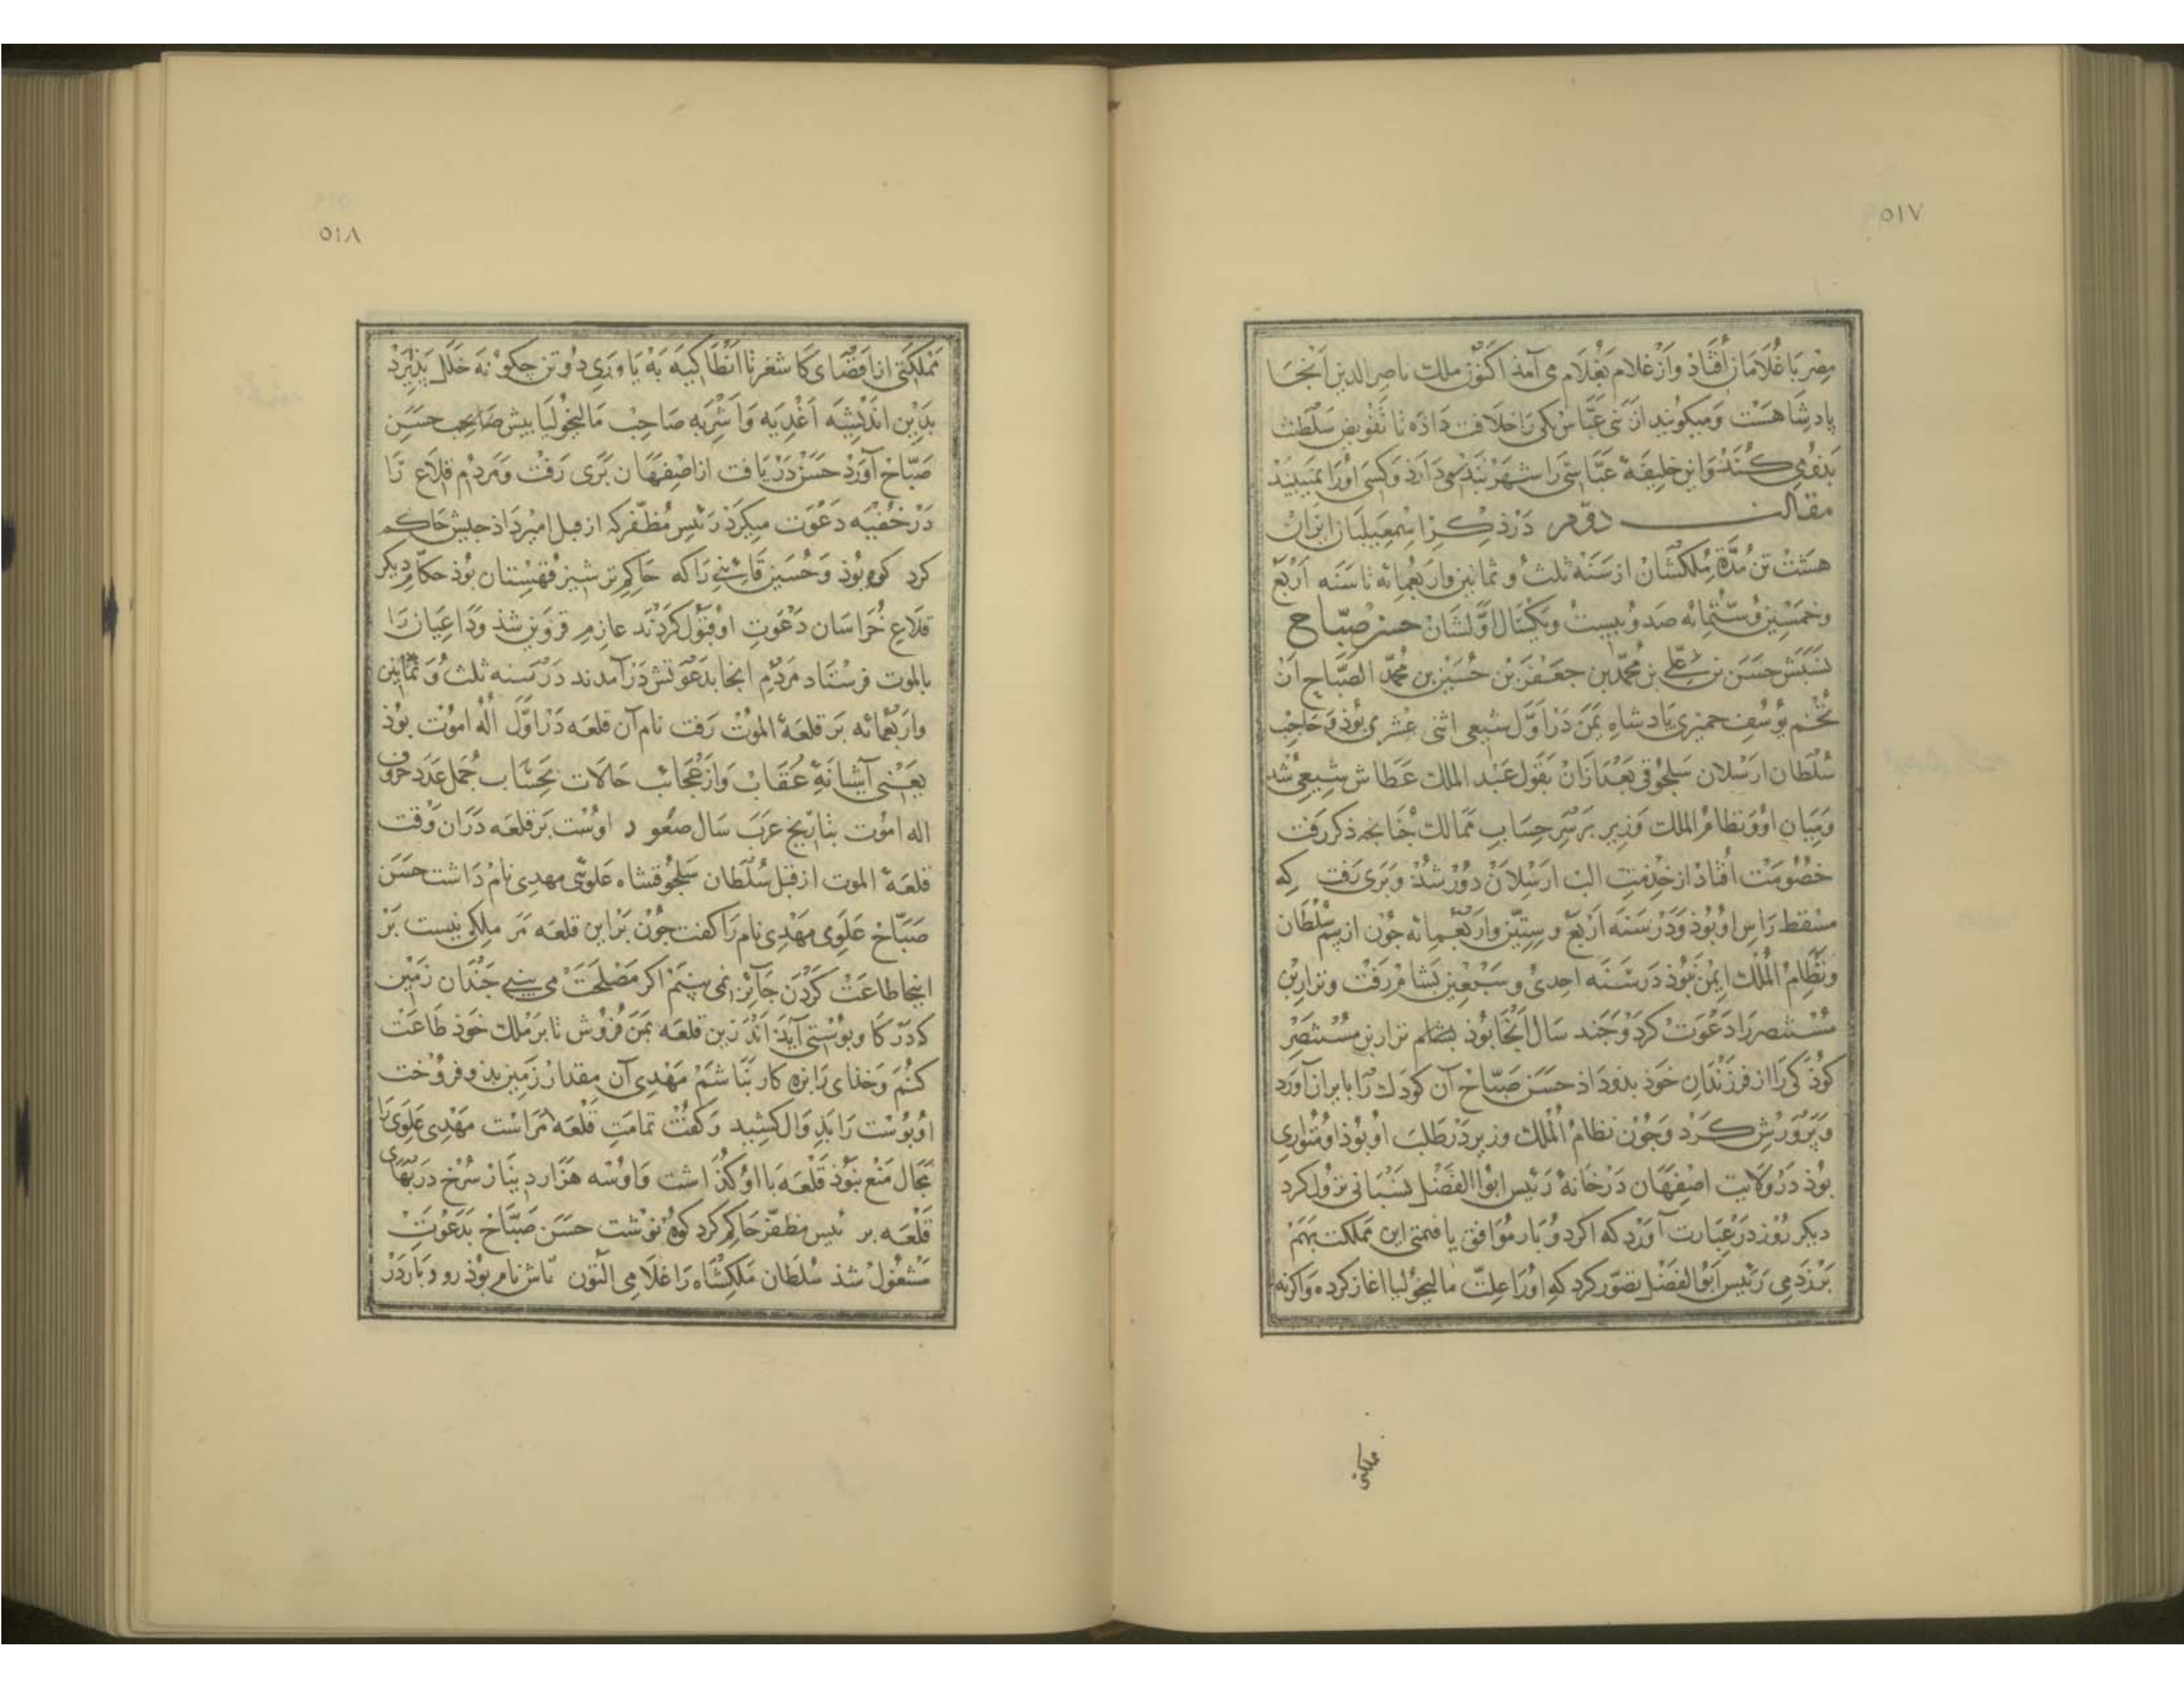 ٥١٧
مصر با غلامان افتاد و از غلام بغلام می آمد اکنون ملک ناصر الدین آنجا
پادشاهست و میکویند از بنی عباس یکی را خلافت داده تا تفویض سلطنت
بدو می کنند و این خلیفهٔ عباسی را شهر بند می دارد و کسی او را نمیبیند
مقالت دوم در ذکر اسمعیلیان ایران
هشت تن مدة ملکشان از سنه ثلث و ثمانین و اربعمائه تا سنه اربع
و خمسین و ستمائه صد و بیست و یکسال اولشان حسن صباح
نسبش حسن بن علی بن محمد بن جعفر بن حسین بن محمد الصباح از
تخم یوسف حمیری پادشاه یمن در اول شیعی اثنی عشری بوذ و حاجب
سلطان ارسلان سلجوقی بعد ازان بقول عبد الملک عطاش شیعی شد
و میان او و نظام الملک وزیر بر سر حساب ممالک چنانچه ذکر رفت
خصومت افتاد از خدمت الب ارسلان دور شد و بری رفت که
مسقط راس او بوذ و در سنه اربع و ستین و اربعمائه جون از بیم سلطان
و نظام الملک ایمن نبوذ در سنه احدی و سبعین بشام رفت و نزار بن
مستنصر را دعوت کرد و چند سال آنجا بوذ نزار بن مستنصر
کوذکی را از فرزندان خوذ بدو داد حسن صباح آن کودک را بایران آورد
و پرورش کرد و جون نظام الملک وزیر در طلب او بوذ او متواری
بوذ در ولایت اصفهان در خانهٔ رئیس ابو الفضل لنبانی نزول کرد
دیکر روز در عبارت آورد که اکر دو یار موافق یافتمی این مملکت بهم
بر زدمی رئیس ابو الفضل تصور کرد که او را علت مالیخولیا اغاز کرده و اکر نه
مملکتی
٥١٨
مملکتی از اقصای کاشغر تا انطاکیه به یاوری دو تن چکونه خلل پذیرد
بدین اندیشه اغذیه و اشربه صاحب مالیخولیا بیش حسن
صباح آورد حسن دریافت از اصفهان بری رفت و مردم قلاع را
در خفیه دعوت میکرد رئیس مظفر که از قبل امیر داد حبش حاکم
کرد کوه بوذ و حسین قائنی را که حاکم ترشیز قهستان بوذ حکام دیکر
قلاع خراسان دعوت او قبول کردند عازم قزوین شذ و داعیان را
بالموت فرستاد مردم انجا بدعوتش درآمدند در سنه ثلث و ثمانین
و اربعمائه بر قلعهٔ الموت رفت نام آن قلعه در اول اله اموت بوذ
یعنی آشیانهٔ عقاب و از عجائب حالات بحساب جمل عدد حروف
اله اموت بتاریخ عرب سال صعود اوست بر قلعه دران وقت
قلعهٔ الموت از قبل سلطان سلجوقشاه علوئی مهدی نام داشت حسن
صباح علوی مهدی نام را کفت جون بر این قلعه مر ملکی نیست بر
اینجا طاعت کردن جائز نمی بینم اکر مصلحت می بینی چندان زمین
که در کاو پوستی آید اندرین قلعه بمن فروش تا بر ملک خوذ طاعت
کنم و خدای را بزه کار نباشم مهدی آن مقدار زمین بدو فروخت
او پوست را بدوال کشید و کفت تمامت قلعه مراست مهدی علوی را
مجال منع نبوذ قلعه با او کذاشت و او سه هزار دینار سرخ در بهای
قلعه بر ئیس مظفر حاکم کرد کوه نوشت حسن صباح بدعوت
مشغول شذ سلطان ملکشاه را غلامی التون تاش نام بوذ روذبار در